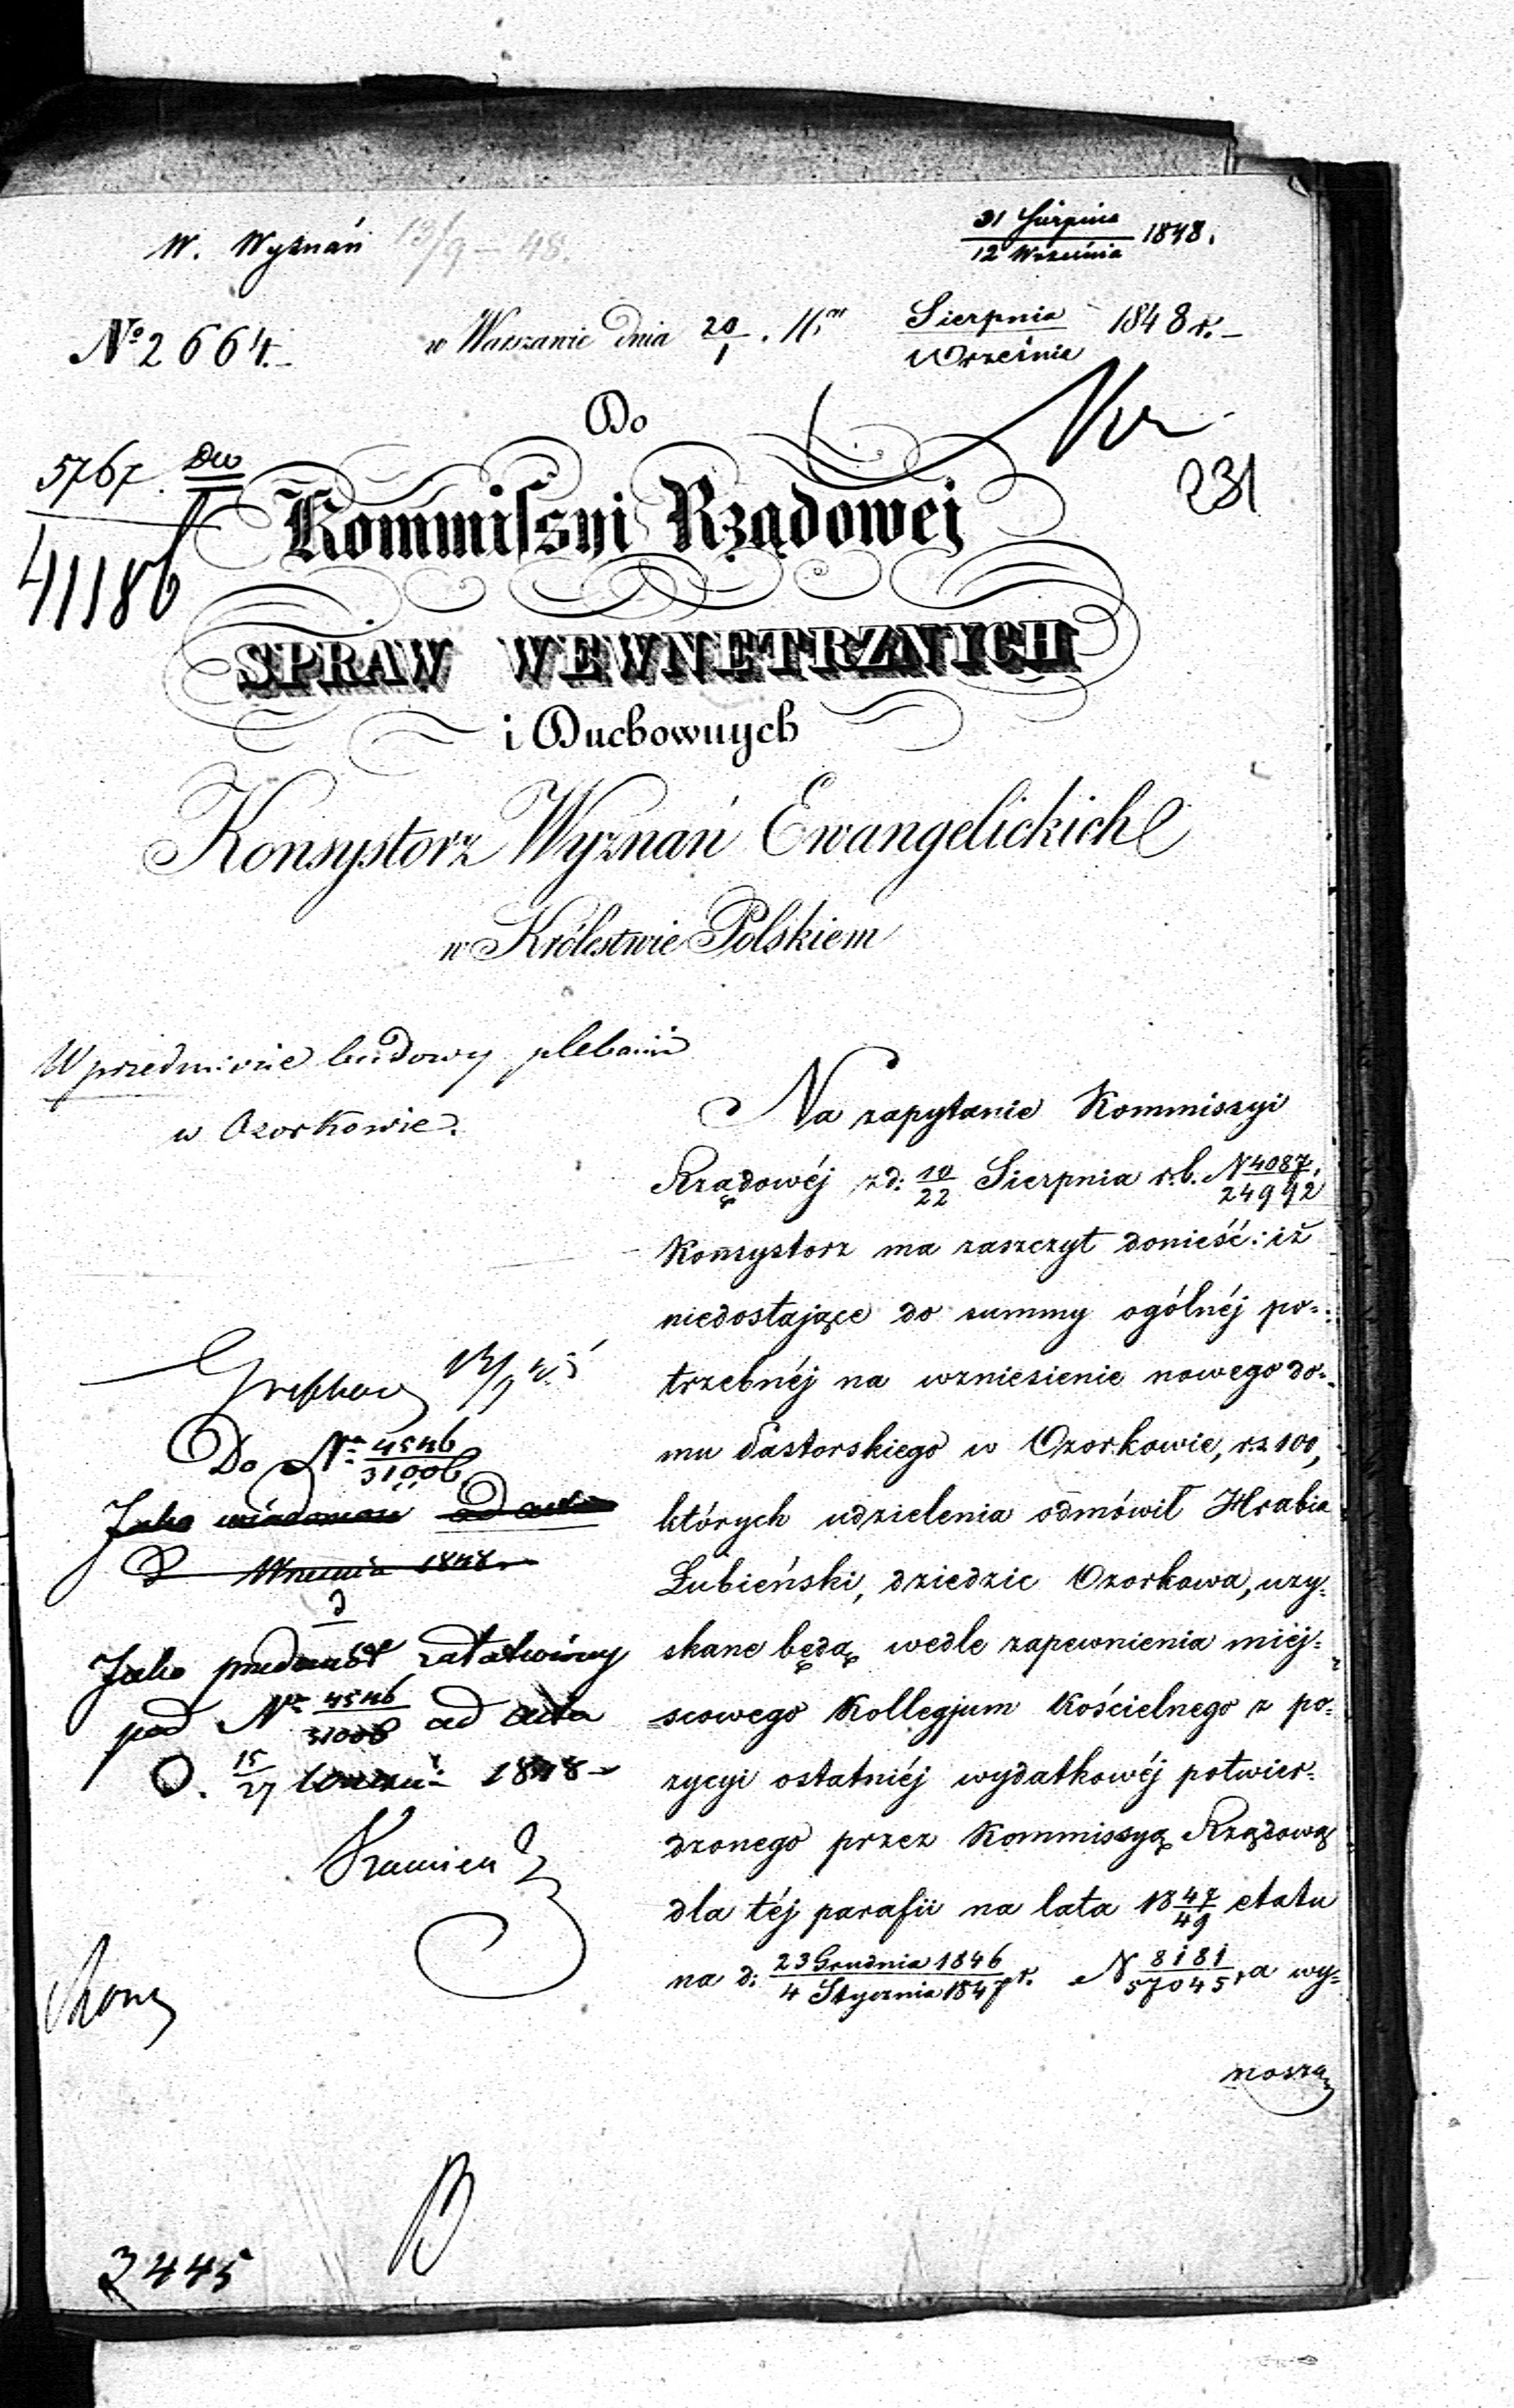 W. Wyznań 13/9 – 48.
31 Sierpnia / 12 Września 1848.
№ 2664.
w Warszawie dnia 20/1
Sierpnia / Września 1848 r.
Do
5767 Dw / 41186
231
Kommissyi Rządowej
SPRAW WEWNĘTRZNYCH
i Duchownych
Konsystorz Wyznań Ewangelickich
w Królestwie Polskiem
W przedmiocie budowy plebanii
w Ozorkowie.
Na zapytanie Kommissyi
Rządowéj z d: 10/22 Sierpnia r.b. N 4087/24992
Konsystorz ma zaszczyt donieść: iż
niedostające do summy ogólnéj po=
trzebnéj na wzniesienie nowego do=
mu Pastorskiego w Ozorkowie, rs 100,
których udzielenia odmówił Hrabia
Łubieński, dziedzic Ozorkowa, uzy=
skane będą, wedle zapewnienia miéj=
scowego Kollegjum Kościelnego z po=
zycyi ostatniéj wydatkowéj potwier=
dzonego przez Kommissyą Rządową
dla téj parafii na lata 18 47/49 etatu
na d: 23 Grudnia 1846 / 4 Stycznia 1847 r. N 8181/57045, a wy=
noszą
Do Nr 4546/31006
Jako wiadomość ad acta
D Września 1848
Jako przedmiot załatwiony
pod Nr 4546/31006 ad acta
D. 15/27 Wrześni 1848
2445